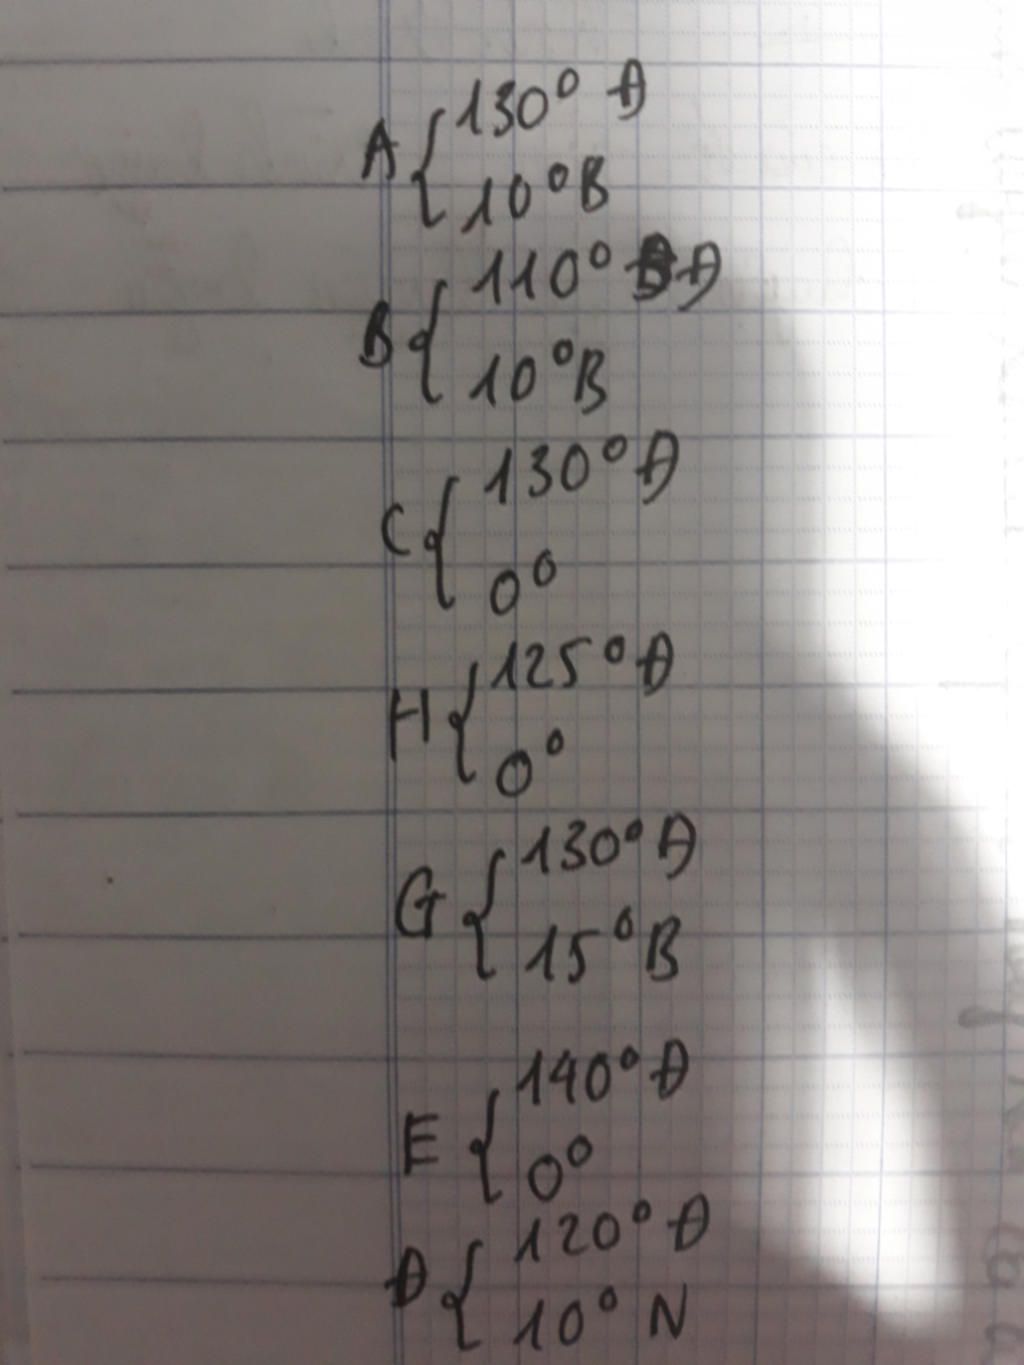 A { 130° Đ
10° B
B { 110° Đ
10° B
C { 130° Đ
0°
H { 125° Đ
0°
G { 130° Đ
15° B
E { 140° Đ
0°
Đ { 120° Đ
10° N